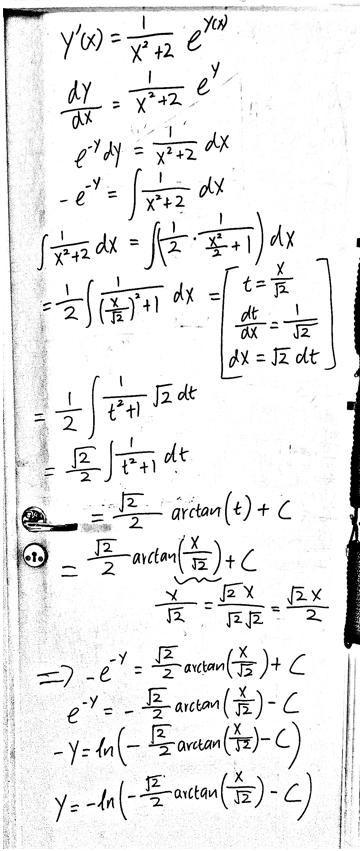 y'(x) = 1/(x²+2) e^y(x)
dy/dx = 1/(x²+2) e^y
e^-y dy = 1/(x²+2) dx
-e^-y = ∫ 1/(x²+2) dx
∫ 1/(x²+2) dx = ∫(1/2 · 1/(x²/2 + 1)) dx
= 1/2 ∫ 1/((x/√2)²+1) dx = [t = x/√2
dt/dx = 1/√2
dx = √2 dt]
= 1/2 ∫ 1/(t²+1) √2 dt
= √2/2 ∫ 1/(t²+1) dt
= √2/2 arctan(t) + C
= √2/2 arctan(x/√2) + C
x/√2 = √2 x/(√2 √2) = √2 x/2
=> -e^-y = √2/2 arctan(x/√2) + C
e^-y = - √2/2 arctan(x/√2) - C
-y = ln(- √2/2 arctan(x/√2) - C)
y = -ln(- √2/2 arctan(x/√2) - C)